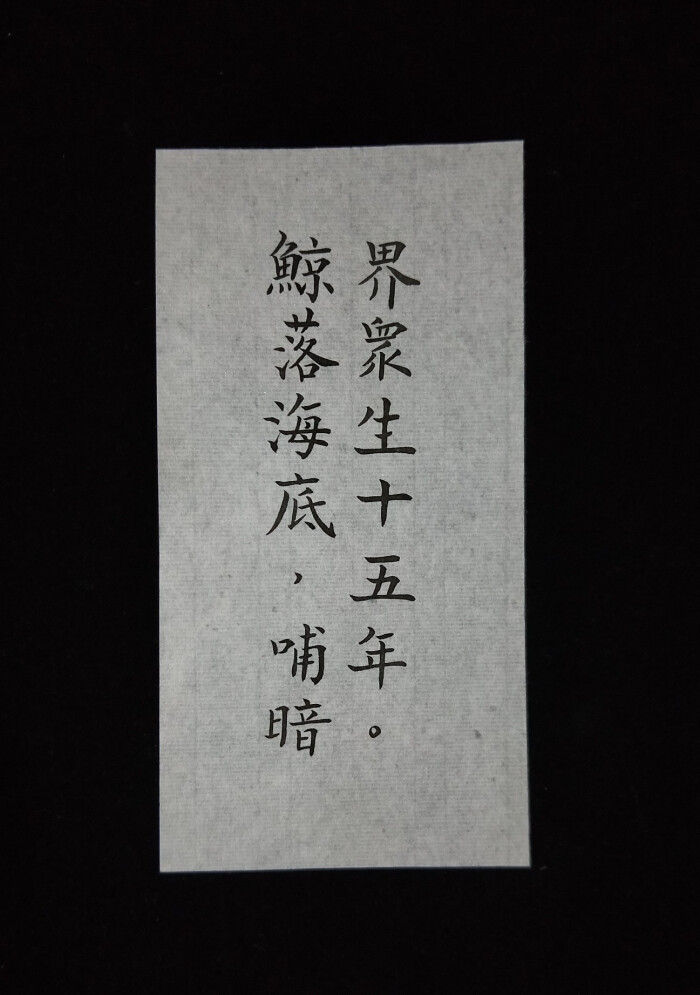 鯨落海底，哺暗
界衆生十五年。